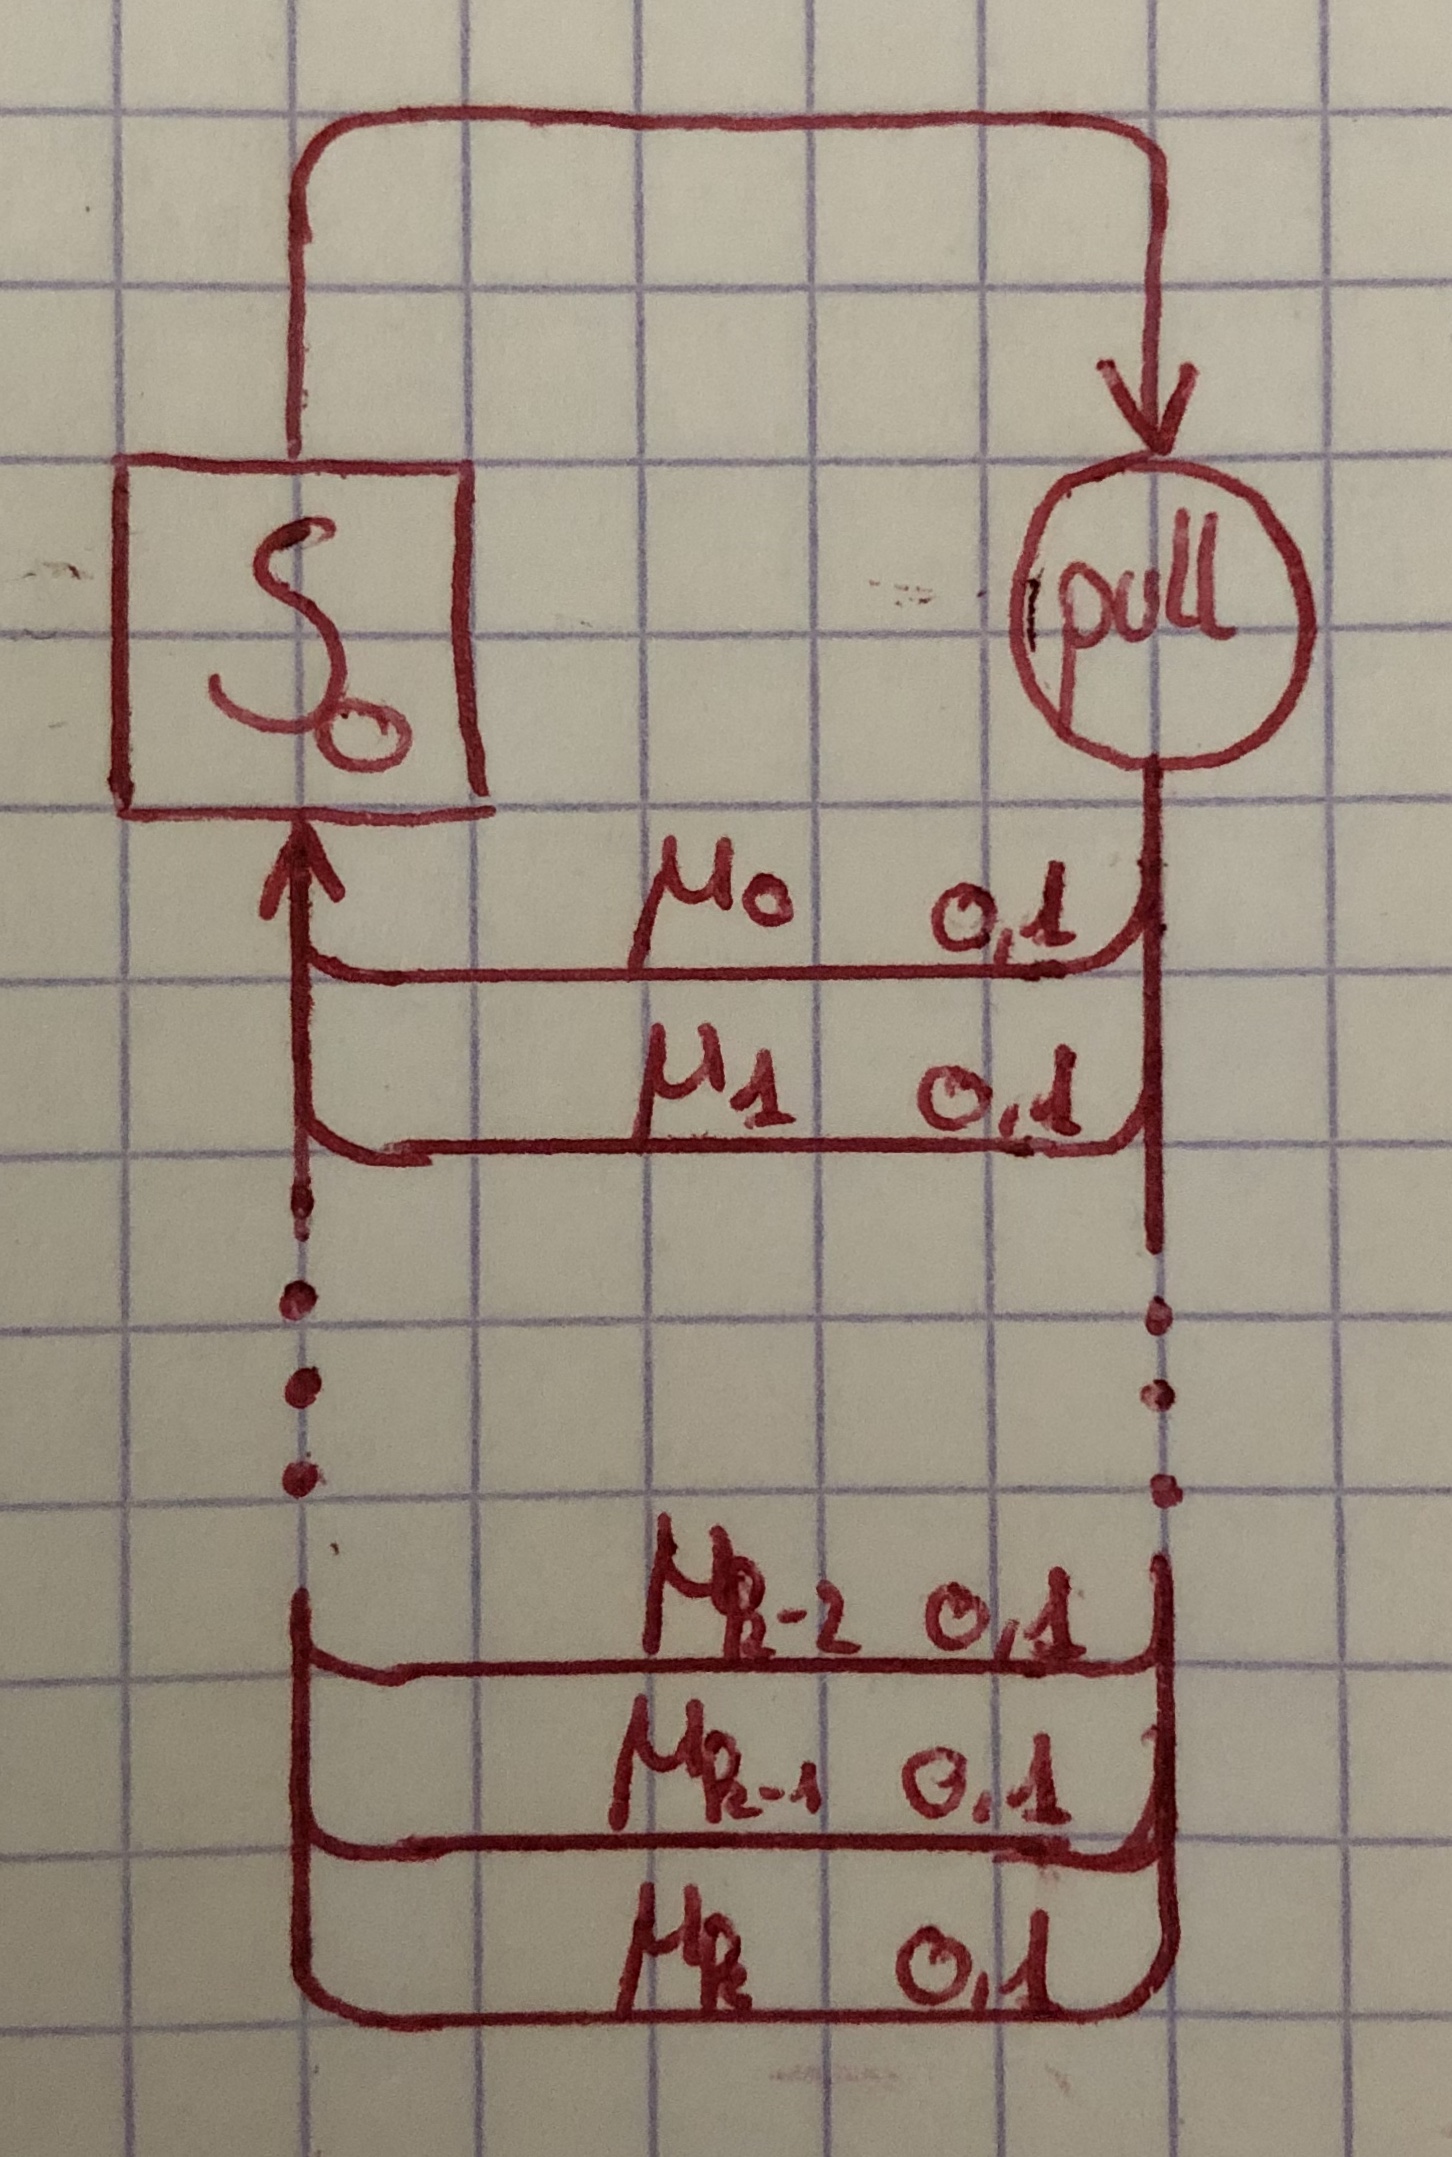 S0
pull
μ0 0,1
μ1 0,1
μk-2 0,1
μk-1 0,1
μk 0,1